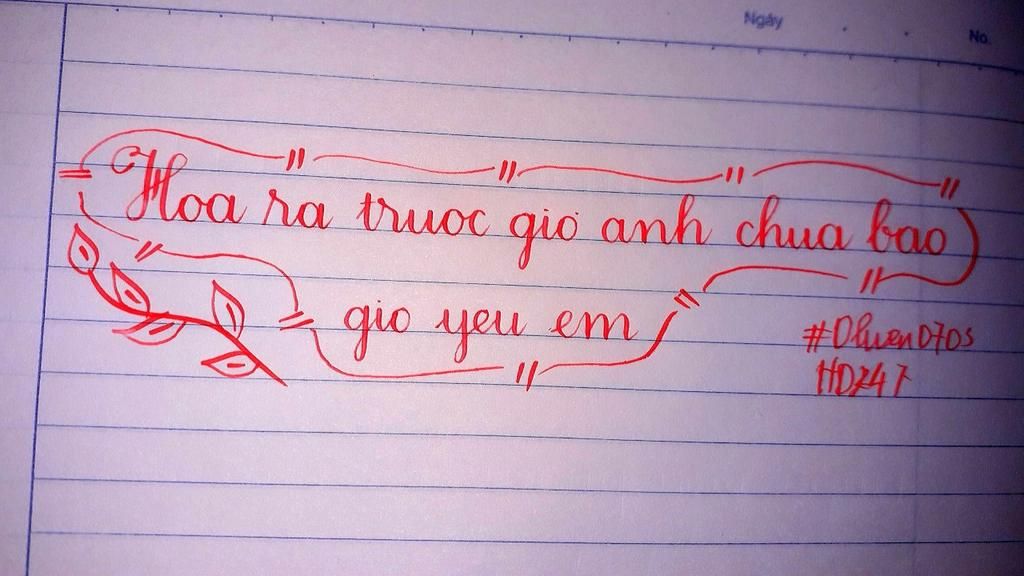 Ngày
No.
Hoa ra truoc gio anh chua bao
gio yeu em
HD747